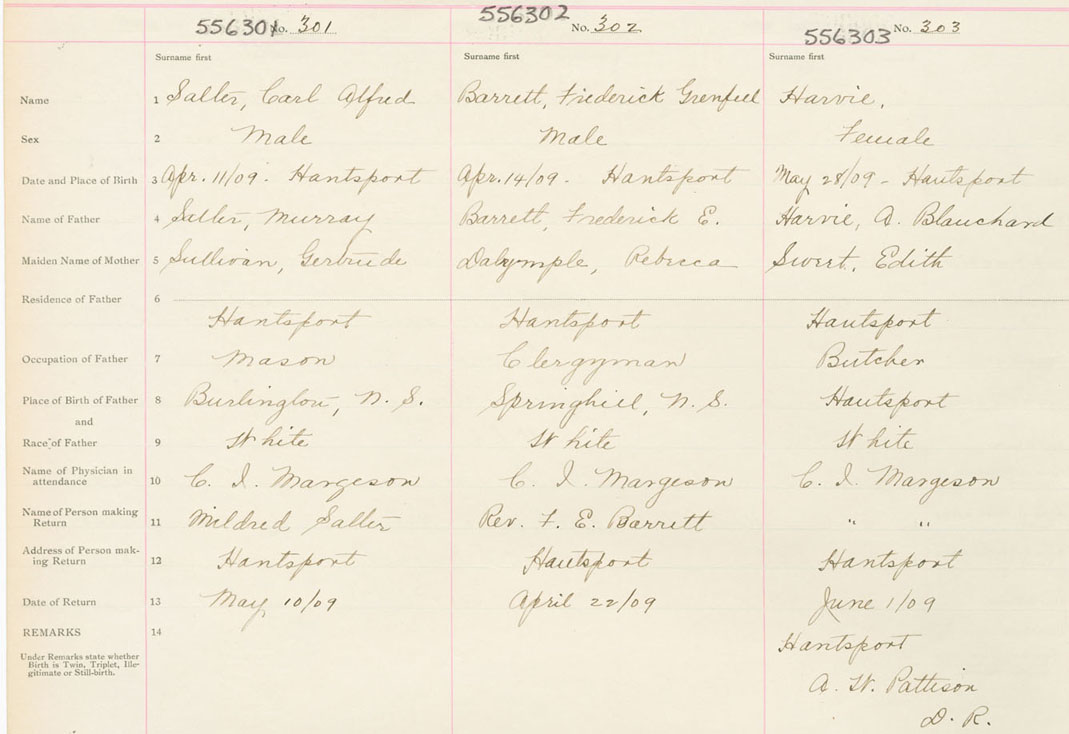 556301 No. 301 556302 No. 302 556303 No. 303
Surname first Surname first Surname first
Name 1 Salter, Carl Alfred Barrett, Frederick Grenfell Harvie,
Sex 2 Male Male Female
Date and Place of Birth 3 Apr. 11/09 - Hantsport Apr. 14/09 - Hantsport May 28/09 - Hantsport
Name of Father 4 Salter, Murray Barrett, Frederick E. Harvie, A. Blanchard
Maiden Name of Mother 5 Sullivan, Gertrude Dalrymple, Rebecca Sweet, Edith
Residence of Father 6
Hantsport Hantsport Hantsport
Occupation of Father 7 Mason Clergyman Butcher
Place of Birth of Father 8 Burlington, N. S. Springhill, N. S. Hantsport
and
Race of Father 9 White White White
Name of Physician in
attendance 10 C. I. Margeson C. I. Margeson C. I. Margeson
Name of Person making
Return 11 Mildred Salter Rev. F. E. Barrett " "
Address of Person mak-
ing Return 12 Hantsport Hantsport Hantsport
Date of Return 13 May 10/09 April 22/09 June 1/09
REMARKS 14
Hantsport
Under Remarks state whether
Birth is Twin, Triplet, Ille-
gitimate or Still-birth.
A. W. Pattison
D. R.